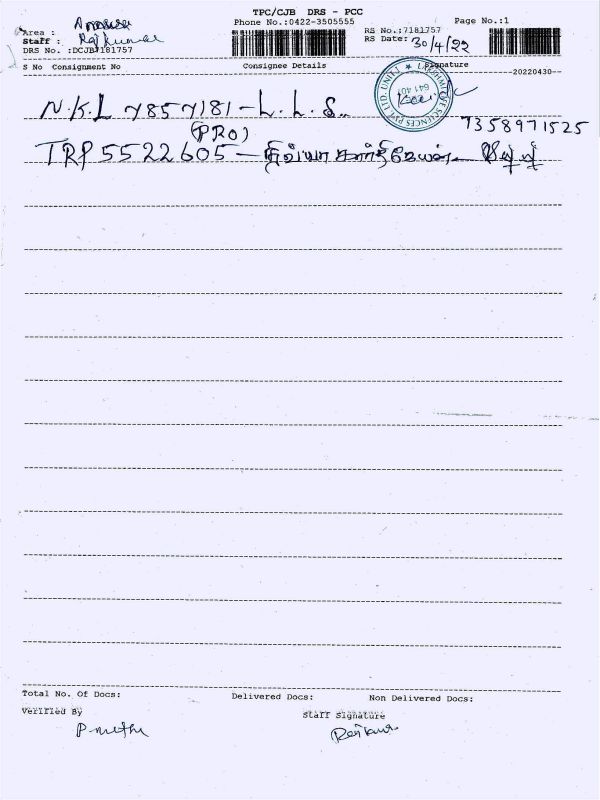 TPC/CJB DRS - PCC
Phone No.:0422-3505555 Page No.:1
Area :
Staff : Rajkumar
RS No.:7181757
RS Date: 30/4/22
DRS No. :DCJB7181757
S No Consignment No Consignee Details Signature
--20220430--
N.K.L 7857181 - L.L.S
(PRO)
7358971525
TRP 5522605 - கார்த்திகேயன்
Total No. Of Docs: Delivered Docs: Non Delivered Docs:
Verified By
Staff Signature